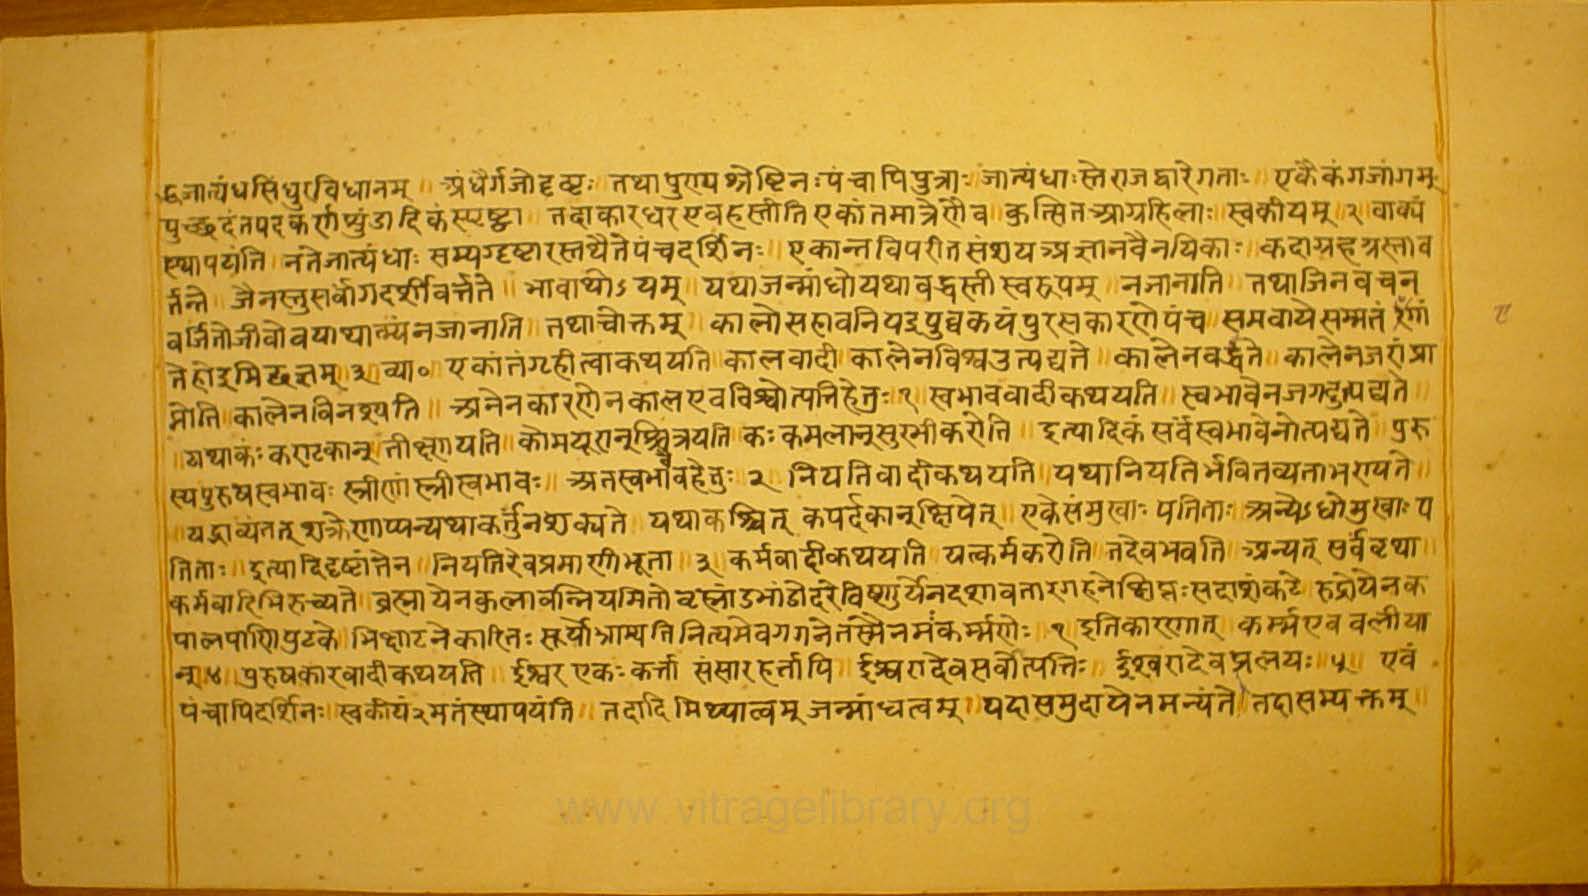 द्धजात्यंधसिंधुरविधानम् ॥ अंधैर्गजोदृष्टः तथापुरायश्रेष्टिनःपंचापिपुत्राः जात्यंधाःस्तेराजद्वारेगताः एकैकंगजांगम्
पुच्छदंतपदकर्णशुंडादिकंस्पृष्ट्वा तदाकारधरएवहस्तीति एकांतमात्रेणैव कुत्सितआग्रहिलाः स्वकीयम् २ वाक्यं
स्थापयंति नतेजात्यंधाः सम्यग्दृष्टारस्तथैतेपंचदर्शिनः एकान्तविपरीतसंशयअज्ञानवैनयिकाः कदाग्रहग्रस्ताव
र्त्तन्ते जैनस्तुसर्वांगदर्शीवर्त्तते ॥ भावार्थोऽयम् यथाजन्मांधोयथावद्धस्तीस्वरूपम् नजानाति तथाजिनवचन
वर्जितोजीवोवयाथात्म्यंनजानाति तथाचोक्तम् कालोसहावनियइपुव्वकयंपुरसकारणेपंच समवायेसम्मतं
तेहोइमिछत्तम् ३ व्या० एकांतंगृहीत्वाकथयति कालवादी कालेनविश्वउत्पद्यते कालेनवर्द्धते कालेनजरांप्रा
प्नोति कालेनविनश्यति ॥ अनेनकारणेनकालएवविश्वोत्पत्तिहेतुः १ स्वभाववादीकथयति स्वभावेनजगदुत्पद्यते
॥ यथाकः कण्टकान् तीक्ष्णयति कोमयूरान्श्चित्रयति कः कमलान्सुरभीकरोति इत्यादिकं सर्वंस्वभावेनोत्पद्यते पुरु
स्यपुरुषस्वभावः स्त्रीणांस्त्रीस्वभावः ॥ अतस्वभावहेतुः २ नियतिवादीकथयति यथानियतिर्भवितव्यताभण्यते
॥ यद्भाव्यंतत् शक्रेणाप्यन्यथाकर्त्तुंनशक्यते यथाकश्चित् कपर्दकान्क्षिपेत् एकेसंमुखाः पतिताः अन्येऽधोमुखाः प
तिताः इत्यादिदृष्टांत्तेन नियतिरेवप्रमाणीभूता ३ कर्मवादीकथयति यत्कर्मकरोति तदेवभवति अन्यत् सर्वंवृथा
कर्मवादिभिरुच्यते ब्रह्मायेनकुलालवन्नियमितोब्रह्मांडभांडोदरेविष्णुर्येनदशावतारगहनेक्षिप्तःसदाशंकटे रुद्रोयेनक
पालपाणिपुटके भिक्षाटनेकारितः सूर्योभ्राम्यतिनित्यमेवगगनेतस्मैनमःकर्म्मणेः १ इतिकारणात् कर्म्मएवबलीया
न् ४ पुरुषकारवादीकथयति ईश्वरएकःकर्त्ता संसारहर्तापि ईश्वरादेवसर्वोत्पत्तिः ईश्वरादेवप्रलयः ५ एवं
पंचापिदर्शिनः स्वकीयं२मतंस्थापयंति तदादिमिथ्यात्वम् जन्मांधत्वम् यदासमुदायेनमन्यंते तदासम्यक्तम्
www.vitragelibrary.org